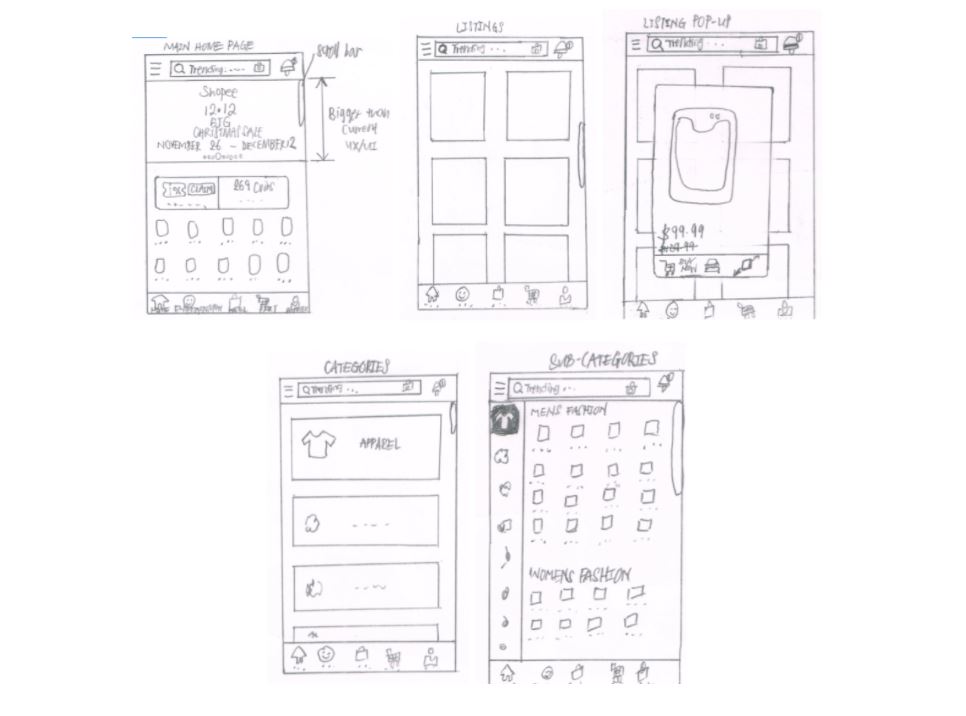 MAIN HOME PAGE
Scroll bar
Trending
Shopee
12.12
BIG
CHRISTMAS SALE
NOVEMBER 26 - DECEMBER 12
Bigger than
Current
UX/UI
CLAIM
269 Coins
HOME
LISTINGS
Trending ...
LISTING POP-UP
Trending ...
$99.99
BUY
NOW
CATEGORIES
Trending ...
APPAREL
SUB-CATEGORIES
Trending ...
MENS FASHION
WOMENS FASHION